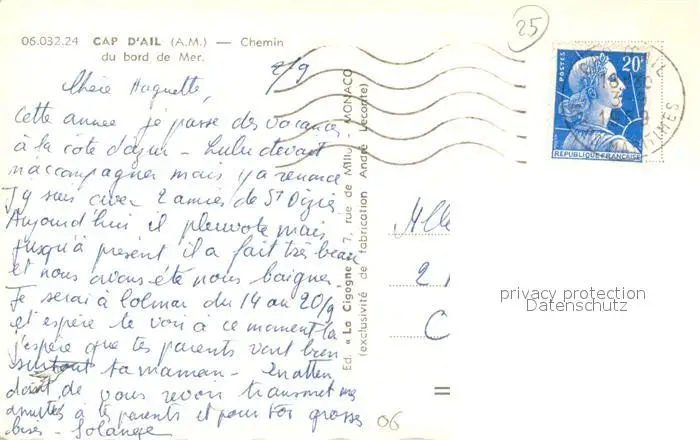 25
06.032.24 CAP D'AIL (A.M.) — Chemin
du bord de Mer.
2/9
Chère Huguette,
Cette année je passe des vacances
à la côte d'azur - Lulu devait
m'accompagner mais y a renoncé
J'y suis avec 2 amies de St Dizier
Aujourd'hui il pleuvote mais
jusqu'à présent il a fait très beau
et nous avons été nous baigner.
Je serai à Colmar du 14 au 20/9
et espère te voir à ce moment là
j'espère que tes parents vont bien
surtout ta maman - En atten
dant de vous revoir transmet mes
amitiés à tes parents et pour toi grosses
bises - Solange
Ed. « La Cigogne » 7, rue de Millo, MONACO
(exclusivité de fabrication André Leconte)
POSTES
20F
REPUBLIQUE FRANÇAISE
Mlle
2
C
privacy protection
Datenschutz
06